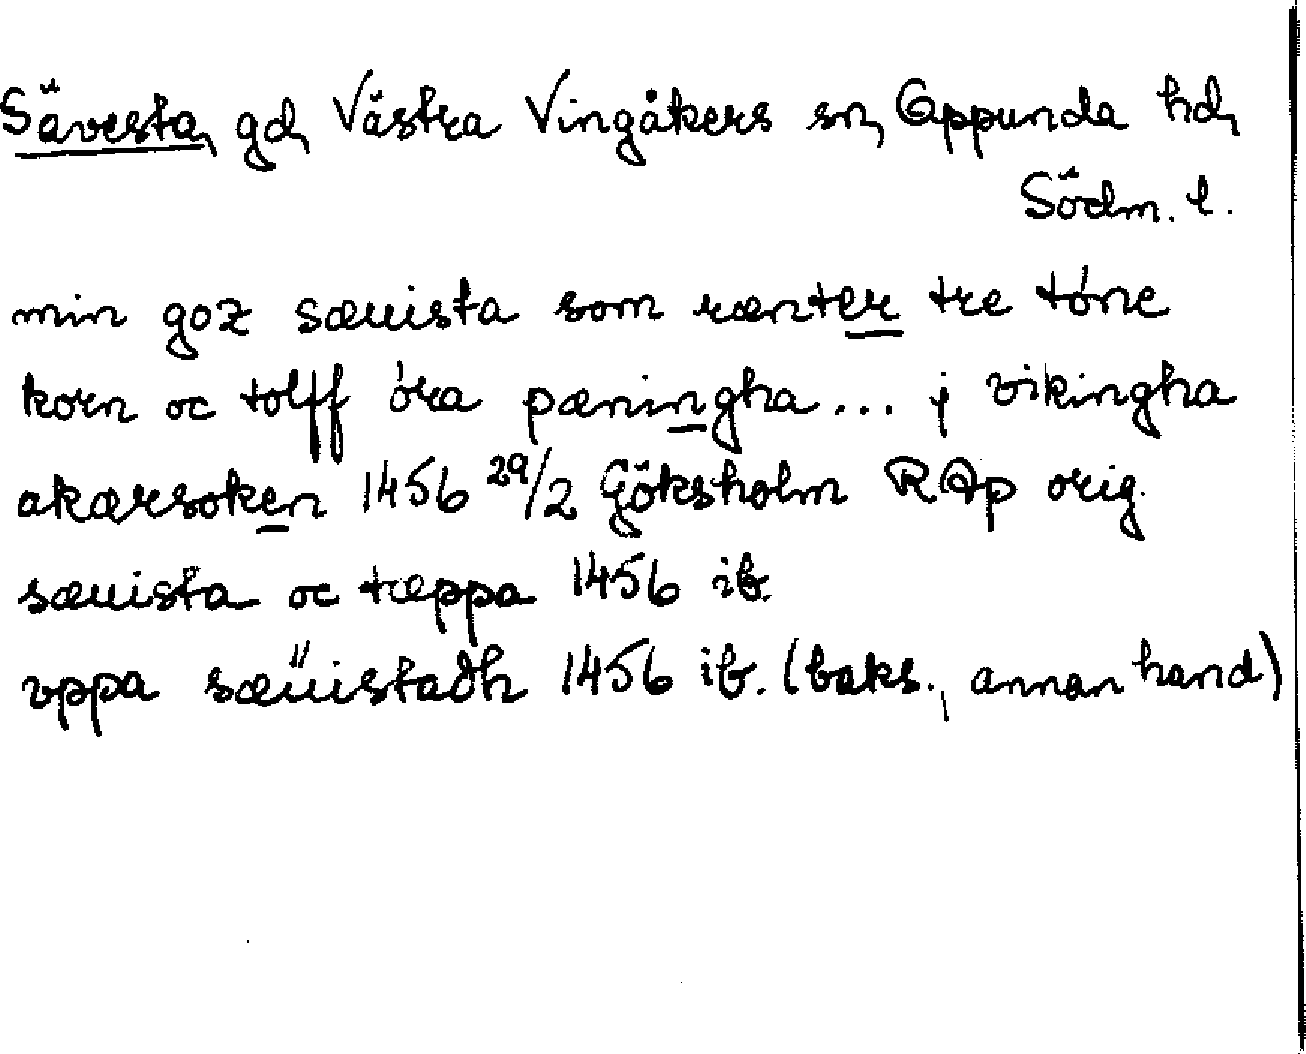 Sävesta, gd, Västra Vingåkers sn, Oppunda hd,
Södm. l.
min goz sæuista som rænter tre tóne
korn oc tolff óra pæningha... j vikingha
akærsoken 1456 29/2 Göksholm RAp orig.
sæuista oc tæppa 1456 ib.
vppa sæűistadh 1456 ib. (baks., annan hand)